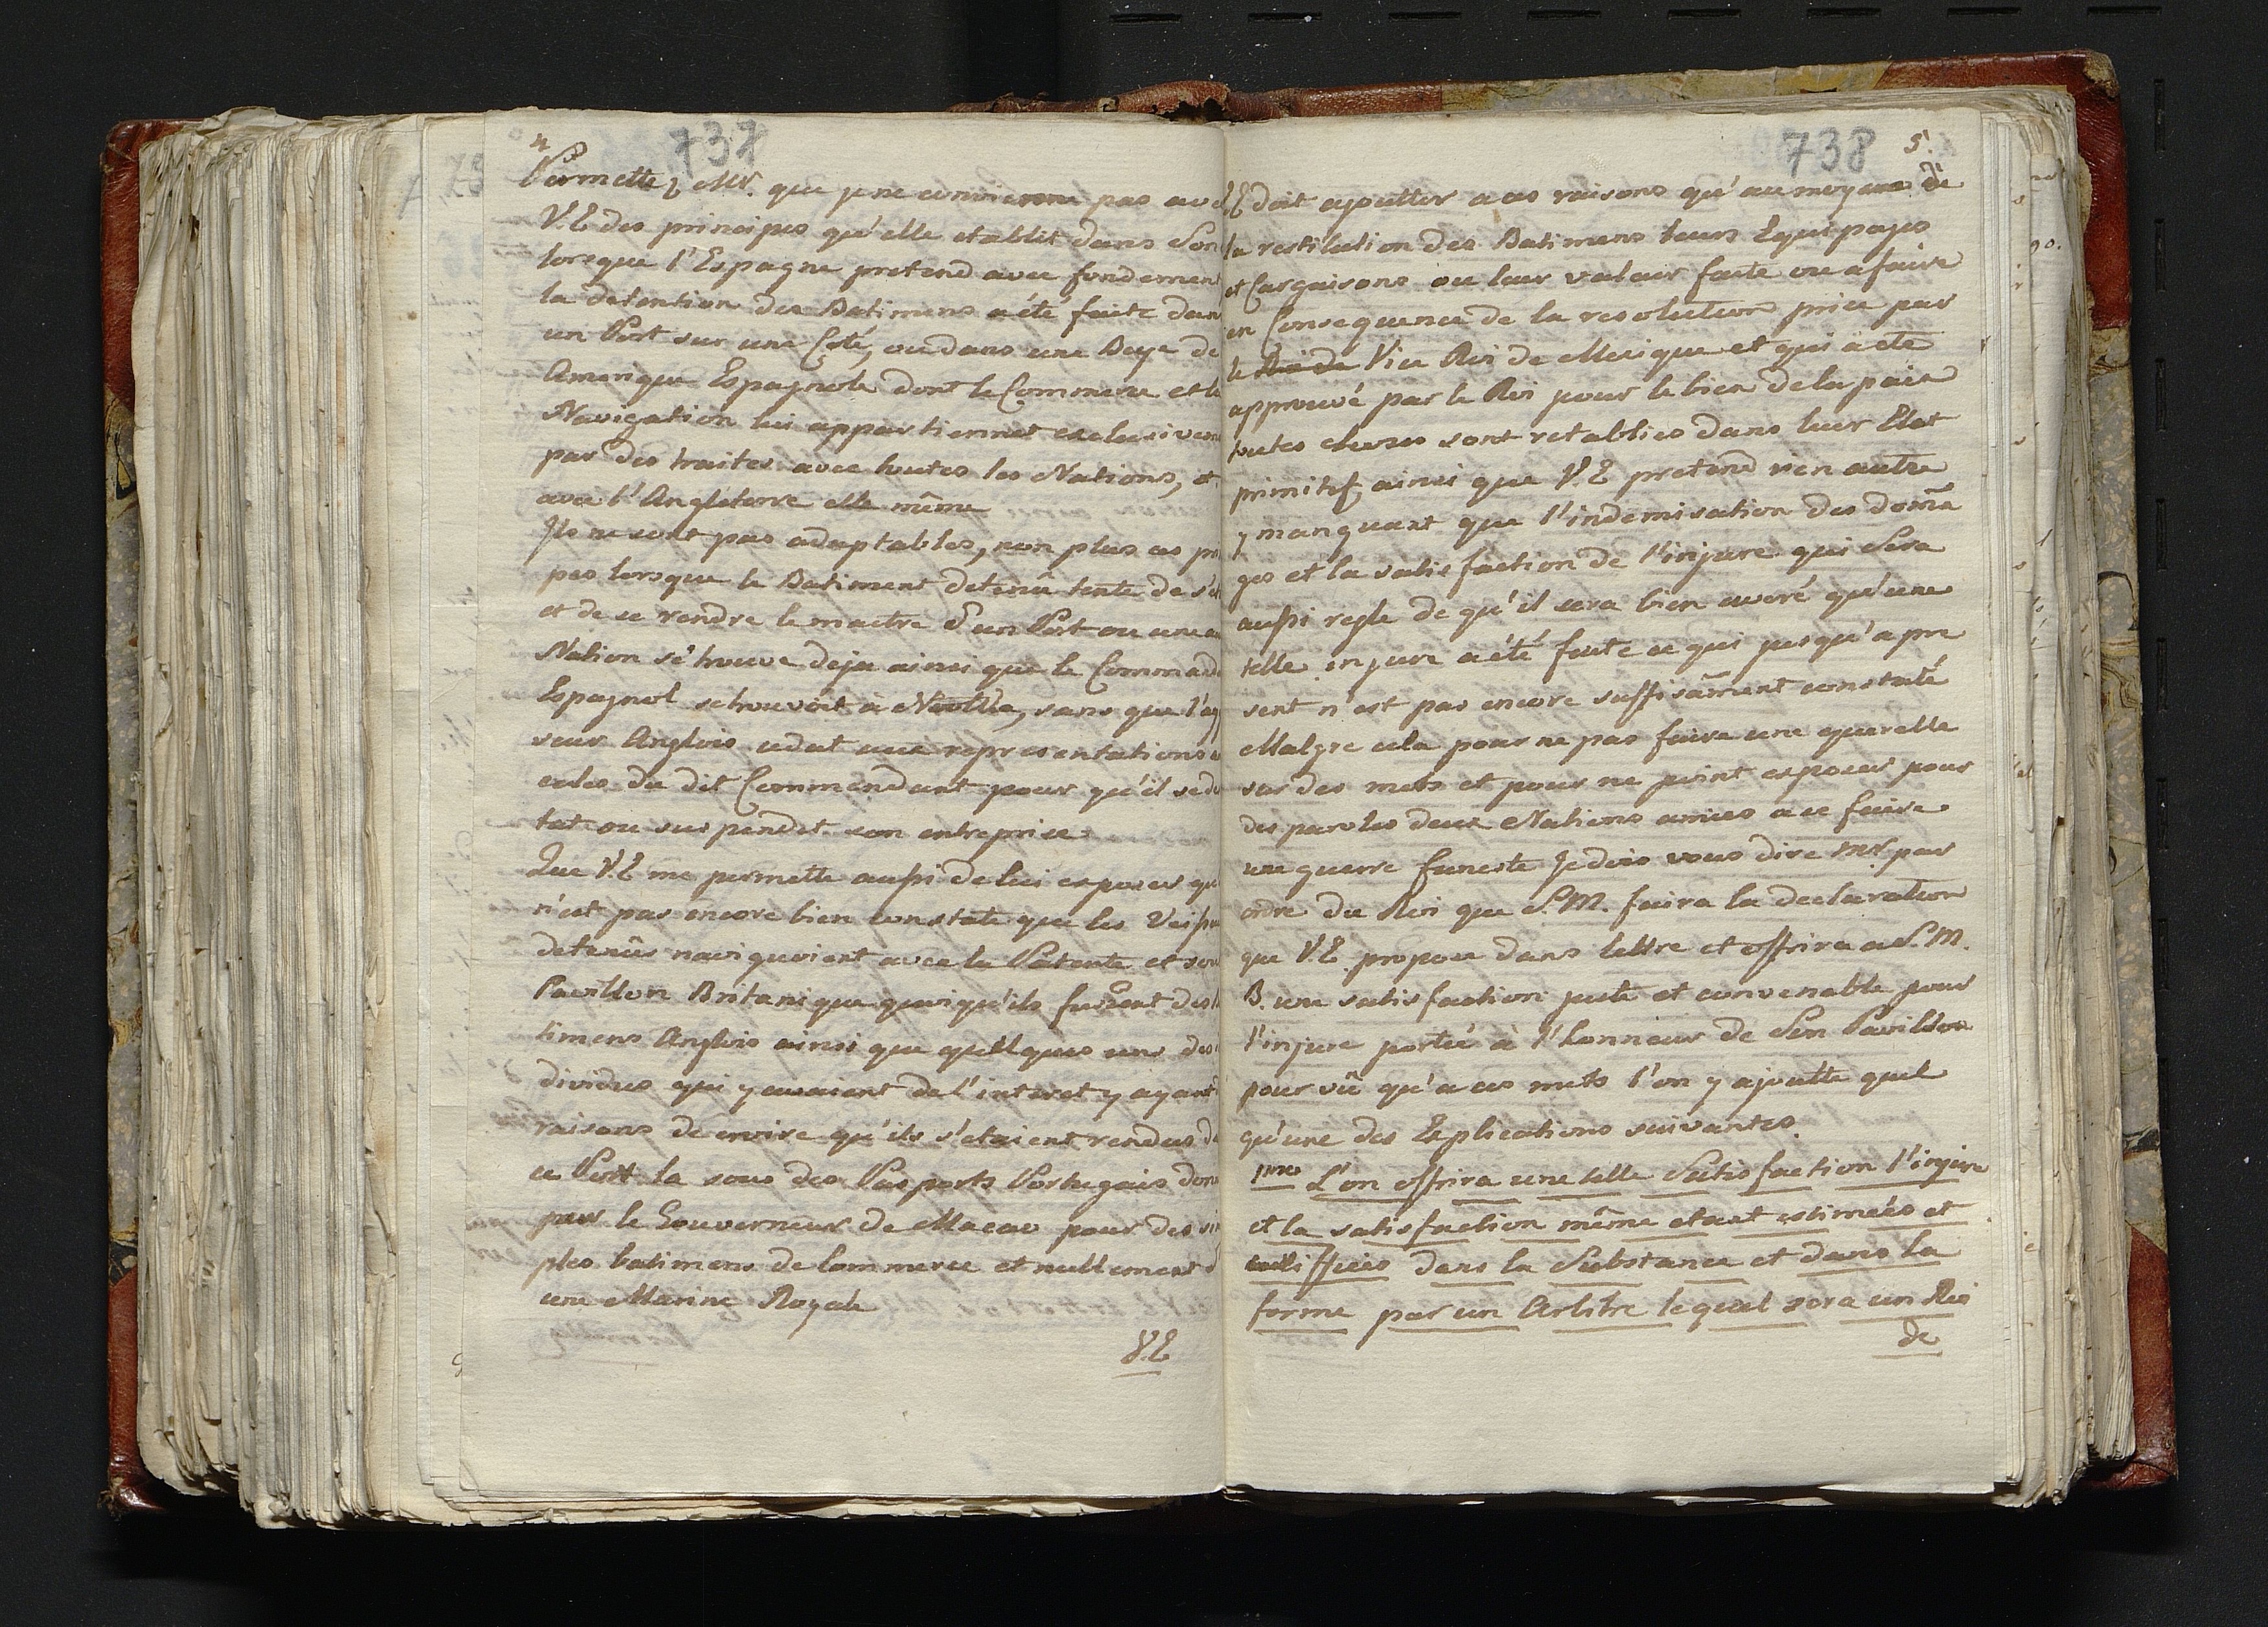 4
737
Permettez Mr. que je ne convienne pas avec
V.E des principes qu'elle etablit dans Son
lorsque l'Espagne pretend avec fondement
la detention des Batimens a été faite dans
un Port sur une Coté, ou dans une Baye de
Amerique Espagnole dont le Commerce et la
Navigation lui appartiennet exclusivem
par des traites avec toutes les Nations, et
avec l'Angleterre elle même
Ils ne sont pas adaptables, non plus ces pr
pes lorsque le Batiment detenû tente de s'et
et de se rendre le maitre d'un Port ou une a
Nation se trouve deja ainsi que le Command
Espagnol se trouvoit à Nootka, sans que l'ag
seur Anglois cedat aux representations
du dit Commendant pour qu'il se de
tat ou suspendit son entreprise
Que V.E me permette aussi de lui exposer qu
n'est pas encore bien constaté que les Vaissea
detenûs naviguoient avec la Patente et sou
Pavillon Britanique quoiqu'ils fussent des b
timens Anglois ainsi que quelques uns des
dividus qui y avaient de l'interet y ayant
raisons de croire qu'ils s'etaient rendus da
ce Port la sous des Pasports Portugais don
par le Gouverneur de Macao pour des sim
ples batimens de Commerce et nullement d'
une Marine Royale
V.E
738
5.
V.E doit ajoutter a ces raisons qu'au moyen de
la restitution des Batimens leurs Equipages
et Cargaisons ou leur valeur faite ou a faire
en Consequence de la resolution prise par
le Roi de Vice Roi de Mexique et qui a eté
approuvé par le Roi pour le bien de la paix
toutes choses sont retablies dans leur Etat
primitif, ainsi que V.E pretend rien autre
y manquant que l'indemisation des doma
ges et la satisfaction de l'injure qui Sera
aussi reglé de qu'il sera bien averé qu'une
telle injure a été faite ce qui jusqu'a pre
sent n'est pas encore suffisâment constaté
Malgre cela pour ne pas faire une querelle
sur des mots et pour ne point exposer pour
des paroles deux Nations amies a se faire
une guerre funeste Je dois vous dire Mr. par
ordre du Roi que S.M. faira la declaration
que V.E propose dans lettre et offrira a S.M.
B. une satisfaction juste et convenable pour
l'injure portée à l'honneur de Son Pavillon
pour vû qu'a ces mots l'on y ajoutte quel
qu'une des Explications suivantes.
1mo L'on offrira une telle Satisfaction l'injure
et la satisfaction même etant estimées et
dans la Substance et dans la
forme par un Arbitre lequel sera un Roi
de